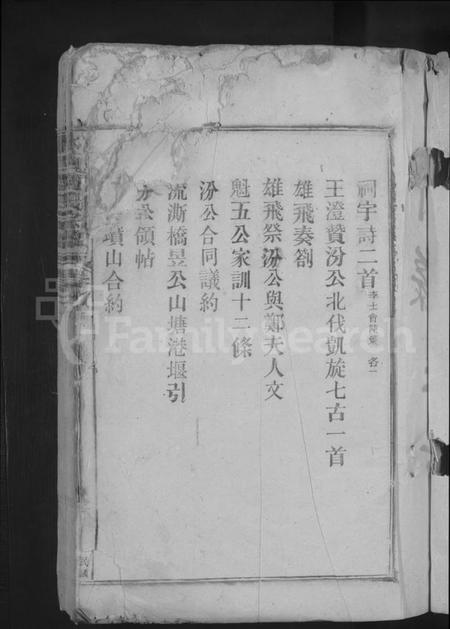 祠宇詩二首李士會陳 各一
王澄贊汾公北伐凱旋七古一首
雄飛奏劄
雄飛祭汾公與鄭夫人文
魁五公家訓十二條
汾公合同議約
流澌橋昱公山塘港堰引
領帖
墳山合約
FamilySearch